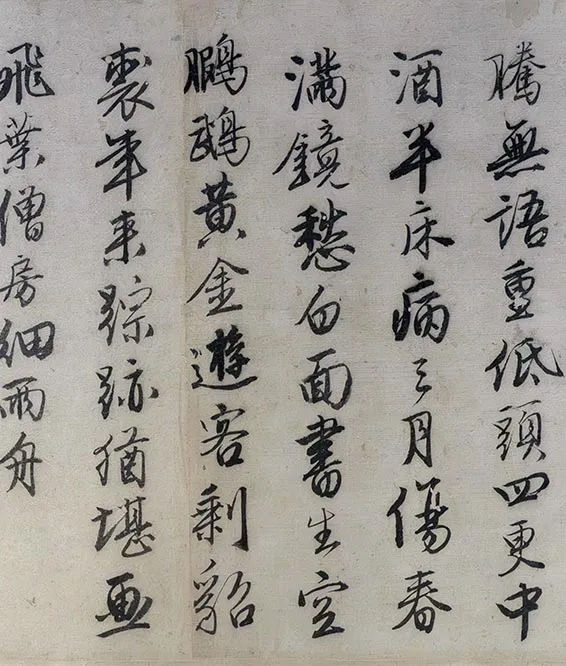 騰無語重低頭四更中
酒半床病三月傷春
滿鏡愁白面書生空
鵬鵡黃金遊客剩貂
裘年來踪跡猶堪画
飛葉僧房細雨舟